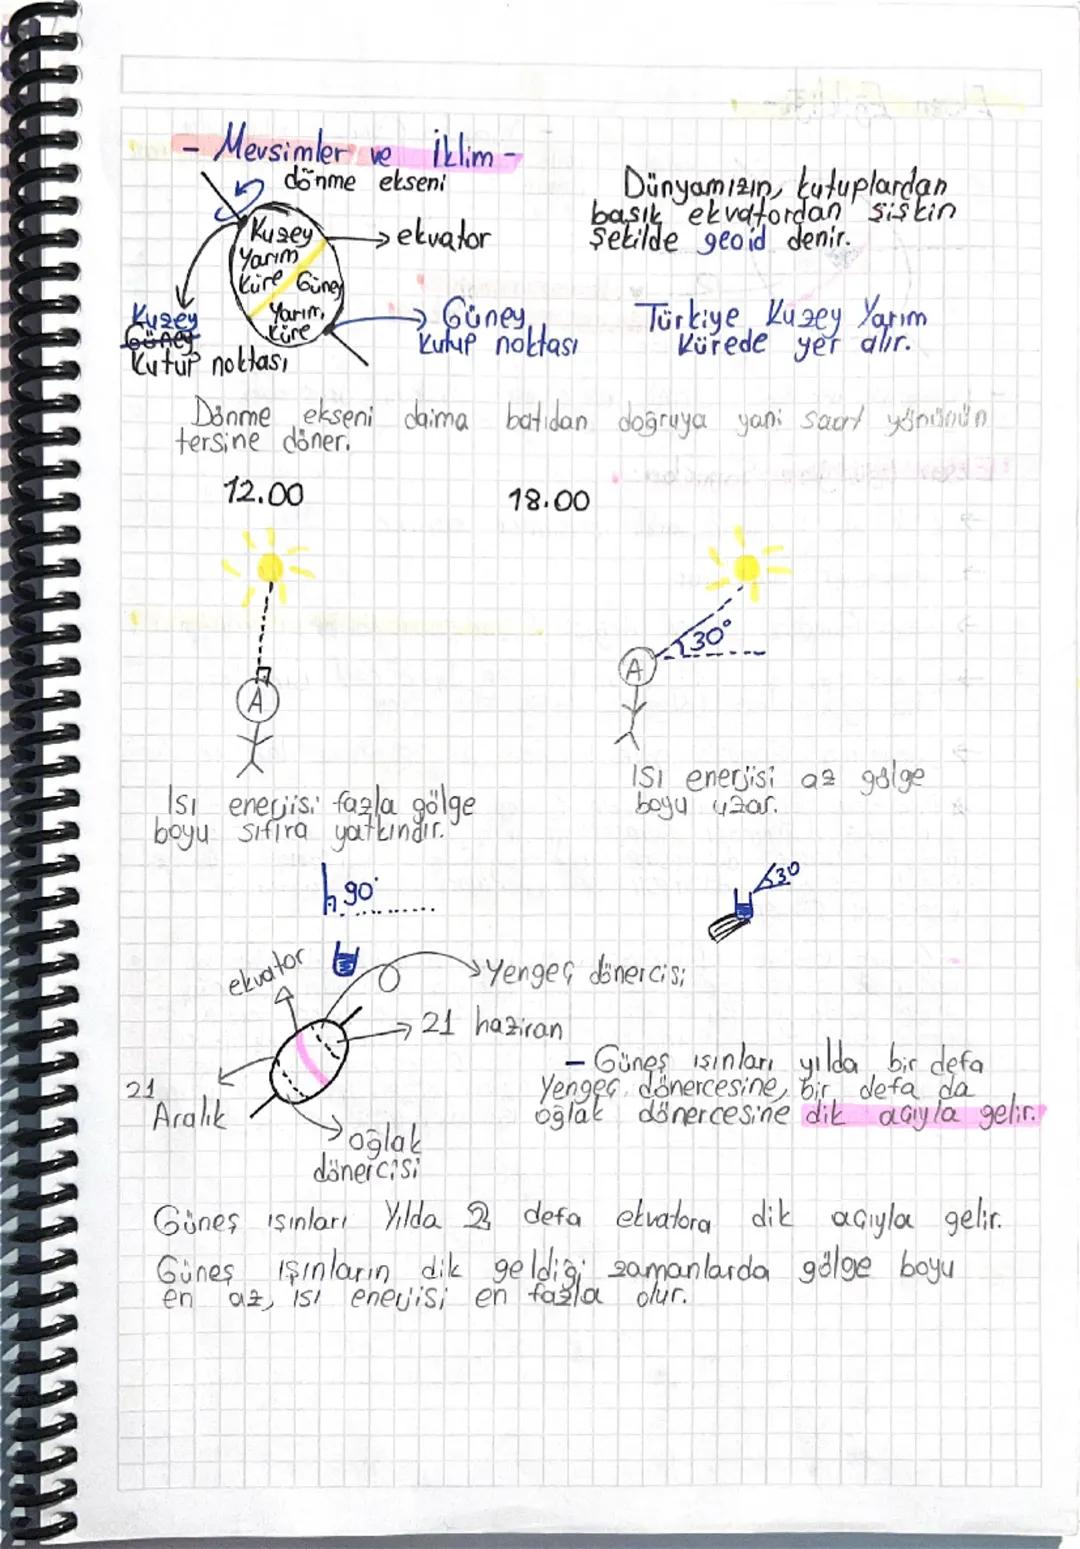 - Mevsimler ve İklim -
dönme ekseni
Kuzey
Yarım
Küre
Güney
Yarım
Küre
ekvator
Kuzey
Güney
Kutup noktası
Güney
Kutup noktası
Dünyamızın, kutuplardan
basık ekvatordan şişkin
şekilde geoid denir.
Türkiye Kuzey Yarım
Kürede yer alır.
Dönme ekseni daima batıdan doğruya yani saat yönünün
tersine döner.
12.00
18.00
A
30°
A
Isı enerjisi fazla gölge
boyu sıfıra yatkındır.
ISI enerjisi az gölge
boyu uzar.
90°
30
ekvator
Yengeç dönercisi
21 haziran
21
Aralık
oğlak
dönercisi
- Güneş ışınları yılda bir defa
Yengeç dönercesine, bir defa da
oğlak dönercesine dik açıyla gelir.
Güneş ışınları Yılda 2 defa ekvatora dik açıyla gelir.
Güneş ışınların dik geldiği zamanlarda gölge boyu
en az, ısı enerjisi en fazla olur.